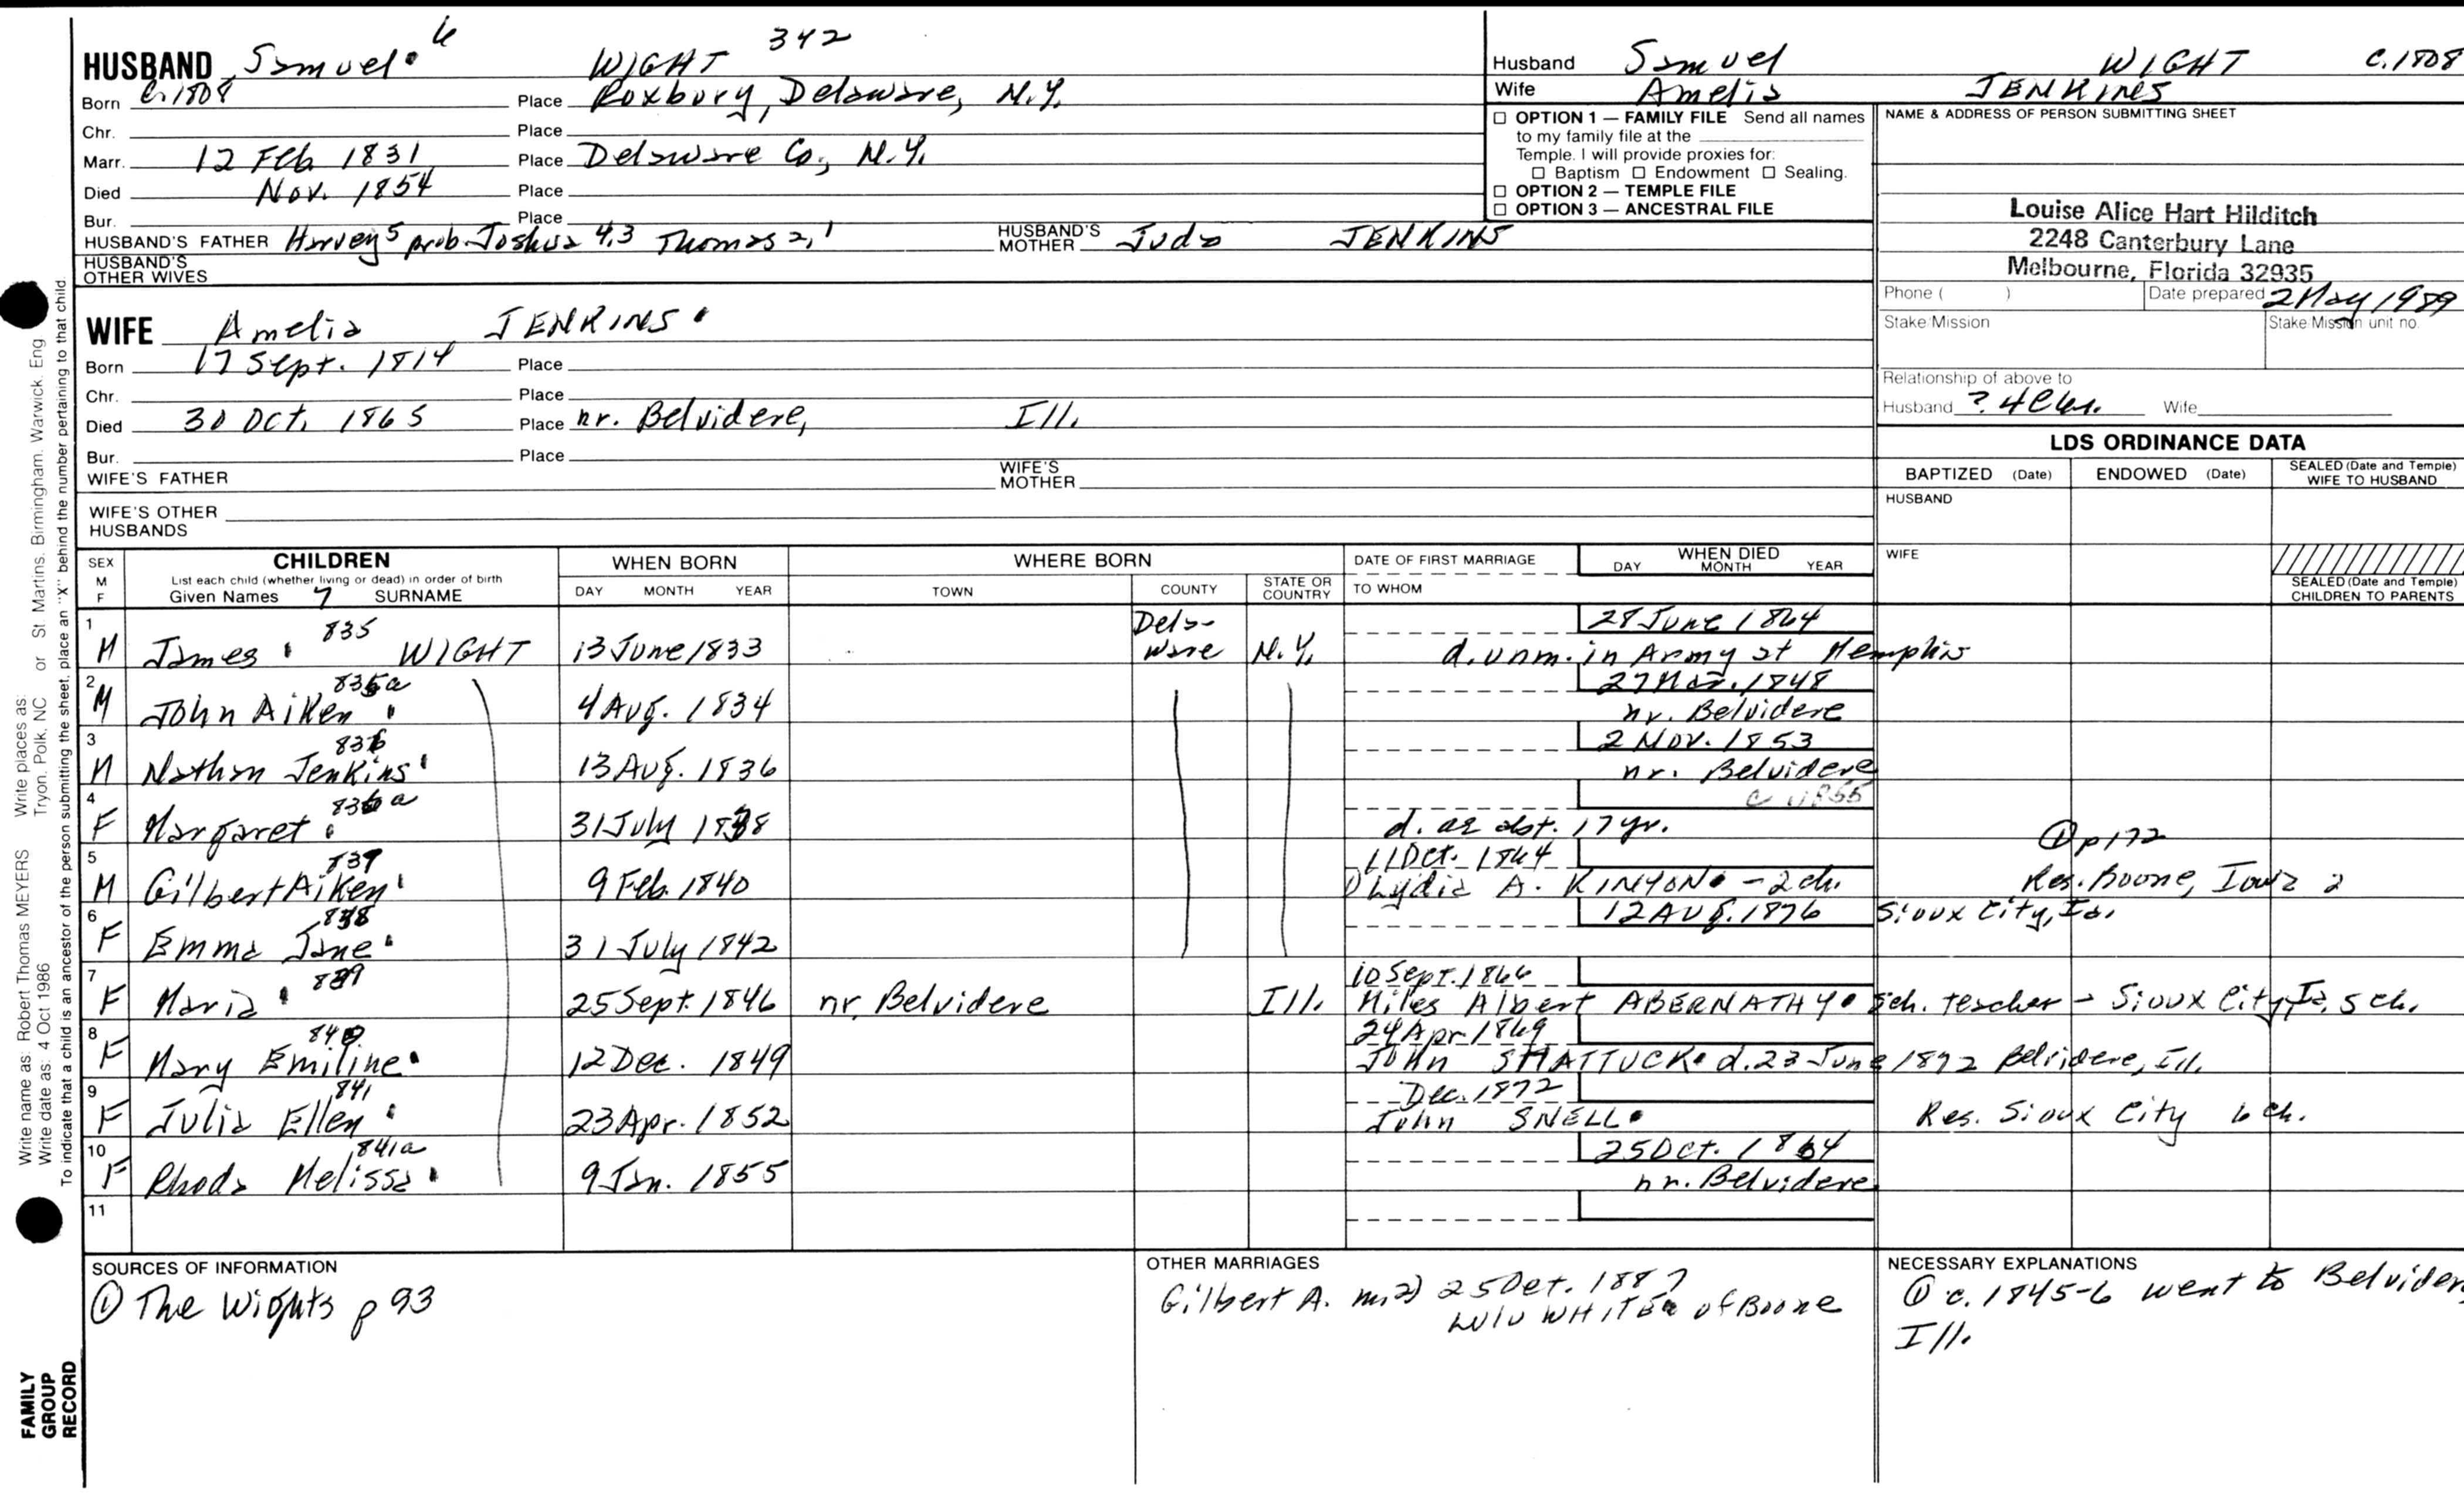 HUSBAND Samuel 6 WIGHT 342
Born C.1808 Place Roxbury, Delaware, N.Y.
Chr. Place
Marr. 12 Feb 1831 Place Delaware Co., N.Y.
Died Nov. 1854 Place
Bur. Place
HUSBAND'S FATHER Harvey 5 prob. Joshua 4,3 Thomas 2,1 HUSBAND'S MOTHER Juda JENKINS
HUSBAND'S OTHER WIVES
WIFE Amelia JENKINS
Born 17 Sept. 1814 Place
Chr. Place
Died 30 Oct. 1865 Place nr. Belvidere, Ill.
Bur. Place
WIFE'S FATHER WIFE'S MOTHER
WIFE'S OTHER HUSBANDS
Husband Samuel WIGHT C.1808
Wife Amelia JENKINS
☐ OPTION 1 — FAMILY FILE Send all names
to my family file at the
Temple. I will provide proxies for:
☐ Baptism ☐ Endowment ☐ Sealing.
☐ OPTION 2 — TEMPLE FILE
☐ OPTION 3 — ANCESTRAL FILE
NAME & ADDRESS OF PERSON SUBMITTING SHEET
Louise Alice Hart Hilditch
2248 Canterbury Lane
Melbourne, Florida 32935
Phone ( ) Date prepared 2 May 1989
Stake/Mission Stake/Mission unit no.
Relationship of above to
Husband ? 4C6r. Wife
LDS ORDINANCE DATA
BAPTIZED (Date) ENDOWED (Date) SEALED (Date and Temple) WIFE TO HUSBAND
HUSBAND
WIFE
SEALED (Date and Temple) CHILDREN TO PARENTS
SEX M F CHILDREN List each child (whether living or dead) in order of birth Given Names 7 SURNAME
WHEN BORN DAY MONTH YEAR
WHERE BORN TOWN COUNTY STATE OR COUNTRY
DATE OF FIRST MARRIAGE TO WHOM
WHEN DIED DAY MONTH YEAR
1 M James 835 WIGHT 13 June 1833 Dela-ware N.Y. 28 June 1864
d. unm. in Army at Memphis
2 M John Aiken 835a 4 Aug. 1834 27 Mar. 1848
nr. Belvidere
3 M Nathan Jenkins 836 13 Aug. 1836 2 Nov. 1853
nr. Belvidere
4 F Margaret 836a 31 July 1838 c 1855
d. ae abt. 17 yr.
5 M Gilbert Aiken 837 9 Feb. 1840 11 Oct. 1864 ① p 172
① Lydia A. KINYON - 2 ch. Res. Boone, Iowa 2
6 F Emma Jane 838 31 July 1842 12 Aug. 1876 Sioux City, Ia.
7 F Maria 839 25 Sept. 1846 nr. Belvidere Ill. 10 Sept. 1866
Miles Albert ABERNATHY Sch. teacher - Sioux City, Ia. 5 ch.
8 F Mary Emiline 840 12 Dec. 1849 24 Apr 1869
John SHATTUCK d. 23 June 1872 Belvidere, Ill.
9 F Julia Ellen 841 23 Apr. 1852 Dec. 1872
John SNELL Res. Sioux City 6 ch.
10 F Rhoda Melissa 841a 9 Jan. 1855 25 Oct. 1864
nr. Belvidere
11
SOURCES OF INFORMATION
① The Wights p 93
OTHER MARRIAGES
Gilbert A. m. 2) 25 Oct. 1887
LuLu WHITE of Boone
NECESSARY EXPLANATIONS
① c. 1845-6 went to Belvider
Ill.
Write name as: Robert Thomas MEYERS Write places as: Tryon, Polk, NC or St. Martins, Birmingham, Warwick, Eng
Write date as: 4 Oct 1986
To indicate that a child is an ancestor of the person submitting the sheet, place an "X" behind the number pertaining to that child.
FAMILY
GROUP
RECORD